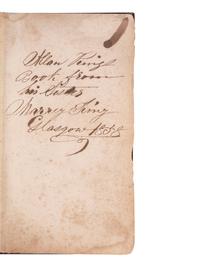 Allan King
Book from
his Sister
Marrey King
Glasgow